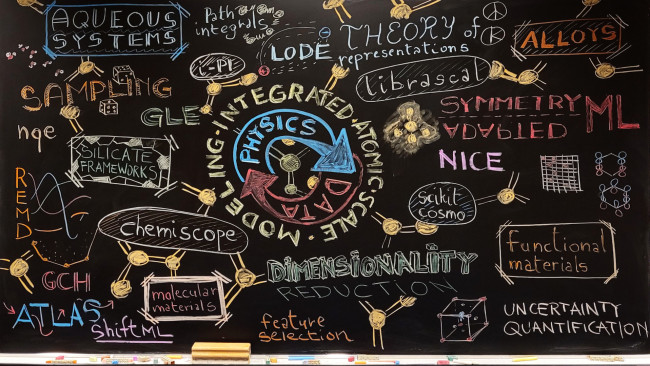 AQUEOUS
SYSTEMS
Path
integrals
LODE
THEORY of
representations
ALLOYS
i-PI
librascal
SAMPLING
GLE
SYMMETRY
ADAPTED
ML
nqe
SILICATE
FRAMEWORKS
INTEGRATED·ATOMIC·SCALE·MODELING·
PHYSICS
DATA
NICE
REMD
scikit
cosmo
chemiscope
functional
materials
GCH
DIMENSIONALITY
REDUCTION
molecular
materials
ATLAS
ShiftML
feature
selection
UNCERTAINTY
QUANTIFICATION